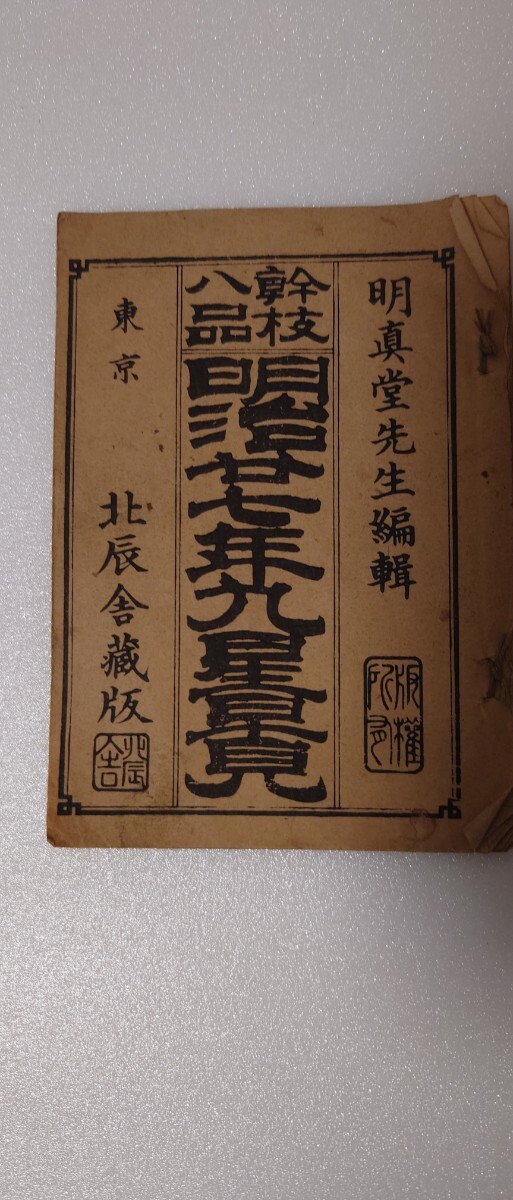 明真堂先生編輯
版權所有
幹枝
八品
明治廿七年九星早見
東京
北辰舎藏版
北辰舎